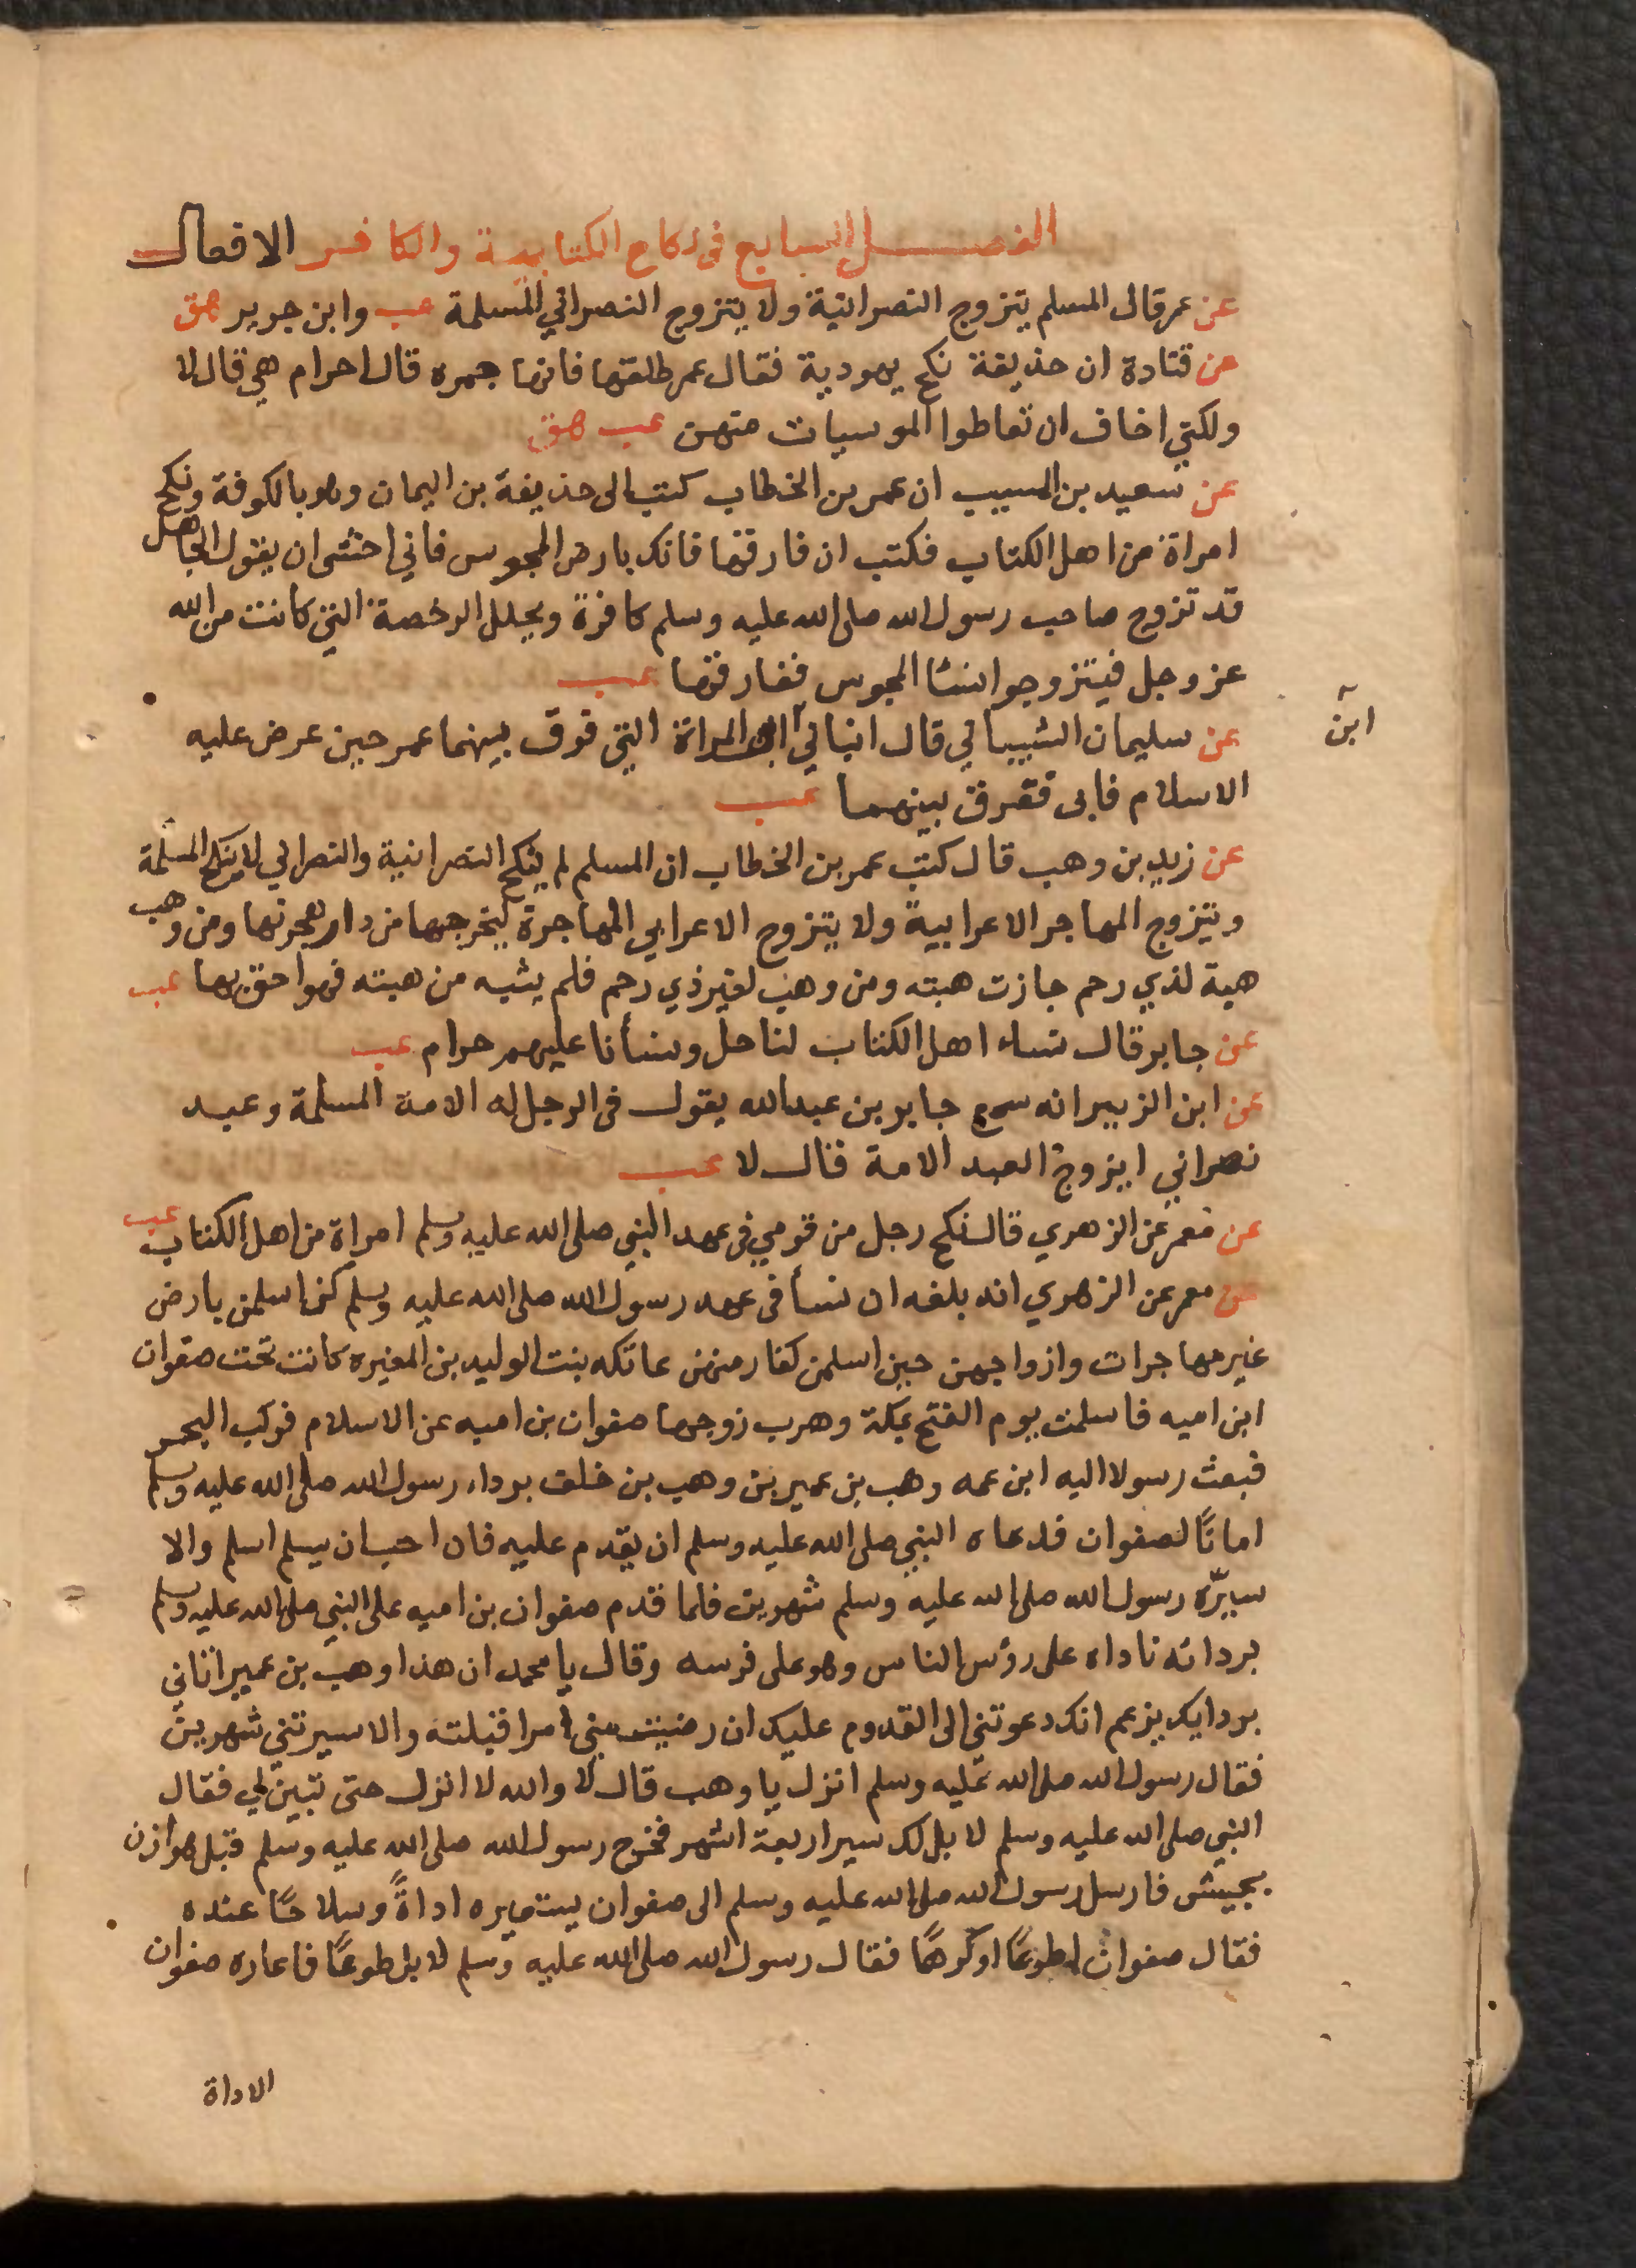 الفصل السابع في نكاح الكتابية والكافر الافعال
عن عمر قال المسلم يتزوج النصرانية ولا يتزوج النصراني المسلمة عب وابن جرير هق
عن قتادة ان حذيفة نكح يهودية فقال عمر طلقها فانها جمره قال احرام هي قال لا
ولكني اخاف ان تعاطوا الموسيات منهن عب هق
عن سعيد بن المسيب ان عمر بن الخطاب كتب الى حذيفة بن اليمان وهو بالكوفة ونكح
امراة من اهل الكتاب فكتب ان فارقها فانك بارض المجوس فاني اخشى ان يقول الجاهل
قد تزوج صاحب رسول الله صلى الله عليه وسلم كافرة ويحلل الرخصة التي كانت من الله
عز وجل فيتزوجوا نسا المجوس ففارقها عب
عن سليمان الشيباني قال انباني المراة التي فرق بينهما عمر حين عرض عليه
ابن
الاسلام فابى ففرق بينهما عب
عن زيد بن وهب قال كتب عمر بن الخطاب ان المسلم لم ينكح النصرانية والنصراني لا ينكح المسلمة
ويتزوج المهاجر الاعرابية ولا يتزوج الاعرابي المهاجرة ليخرجها من دار هجرتها ومن وهب
هبة لذي رحم جازت هبته ومن وهب لغير ذي رحم فلم يثبه من هبته فهو احق بها عب
عن جابر قال نساء اهل الكتاب لنا حل ونسأنا عليهم حرام عب
عن ابن الزبير انه سمع جابر بن عبد الله يقول في الرجل له الامة المسلمة وعبد
نصراني ايزوج العبد الامة قال لا عب
عن معمر عن الزهري قال نكح رجل من قومي في عهد النبي صلى الله عليه وسلم امراة من اهل الكتاب عب
عن معمر عن الزهري انه بلغه ان نسأ في عهد رسول الله صلى الله عليه وسلم كن اسلمن بارض
غير مهاجرات وازواجهن حين اسلمن كفار منهن عاتكه بنت الوليد بن المغيره كانت تحت صفوان
ابن اميه فاسلمت يوم الفتح بمكة وهرب زوجها صفوان بن اميه عن الاسلام فركب البحر
فبعث رسولا اليه ابن عمه وهب بن عمير بن وهب بن خلف برداء رسول الله صلى الله عليه وسلم
امانًا لصفوان فدعاه النبي صلى الله عليه وسلم ان يقدم عليه فان احب ان يسلم اسلم والا
سيّره رسول الله صلى الله عليه وسلم شهرين فلما قدم صفوان بن اميه على النبي صلى الله عليه وسلم
بردائه ناداه على رؤس الناس وهو على فرسه وقال يا محمد ان هذا وهب بن عمير اتاني
بردايك يزعم انك دعوتني الى القدوم عليك ان رضيت مني امرا قبلته والا سيرتني شهرين
فقال رسول الله صلى الله عليه وسلم انزل يا وهب قال لا والله لا انزل حتى تبين لي فقال
النبي صلى الله عليه وسلم لا بل لك سير اربعة اشهر فخرج رسول الله صلى الله عليه وسلم قبل هوازن
بجيش فارسل رسول الله صلى الله عليه وسلم الى صفوان يستعيره اداةً وسلاحًا عنده
فقال صفوان اطوعًا او كرهًا فقال رسول الله صلى الله عليه وسلم لا بل طوعًا فاعاره صفوان
الاداة